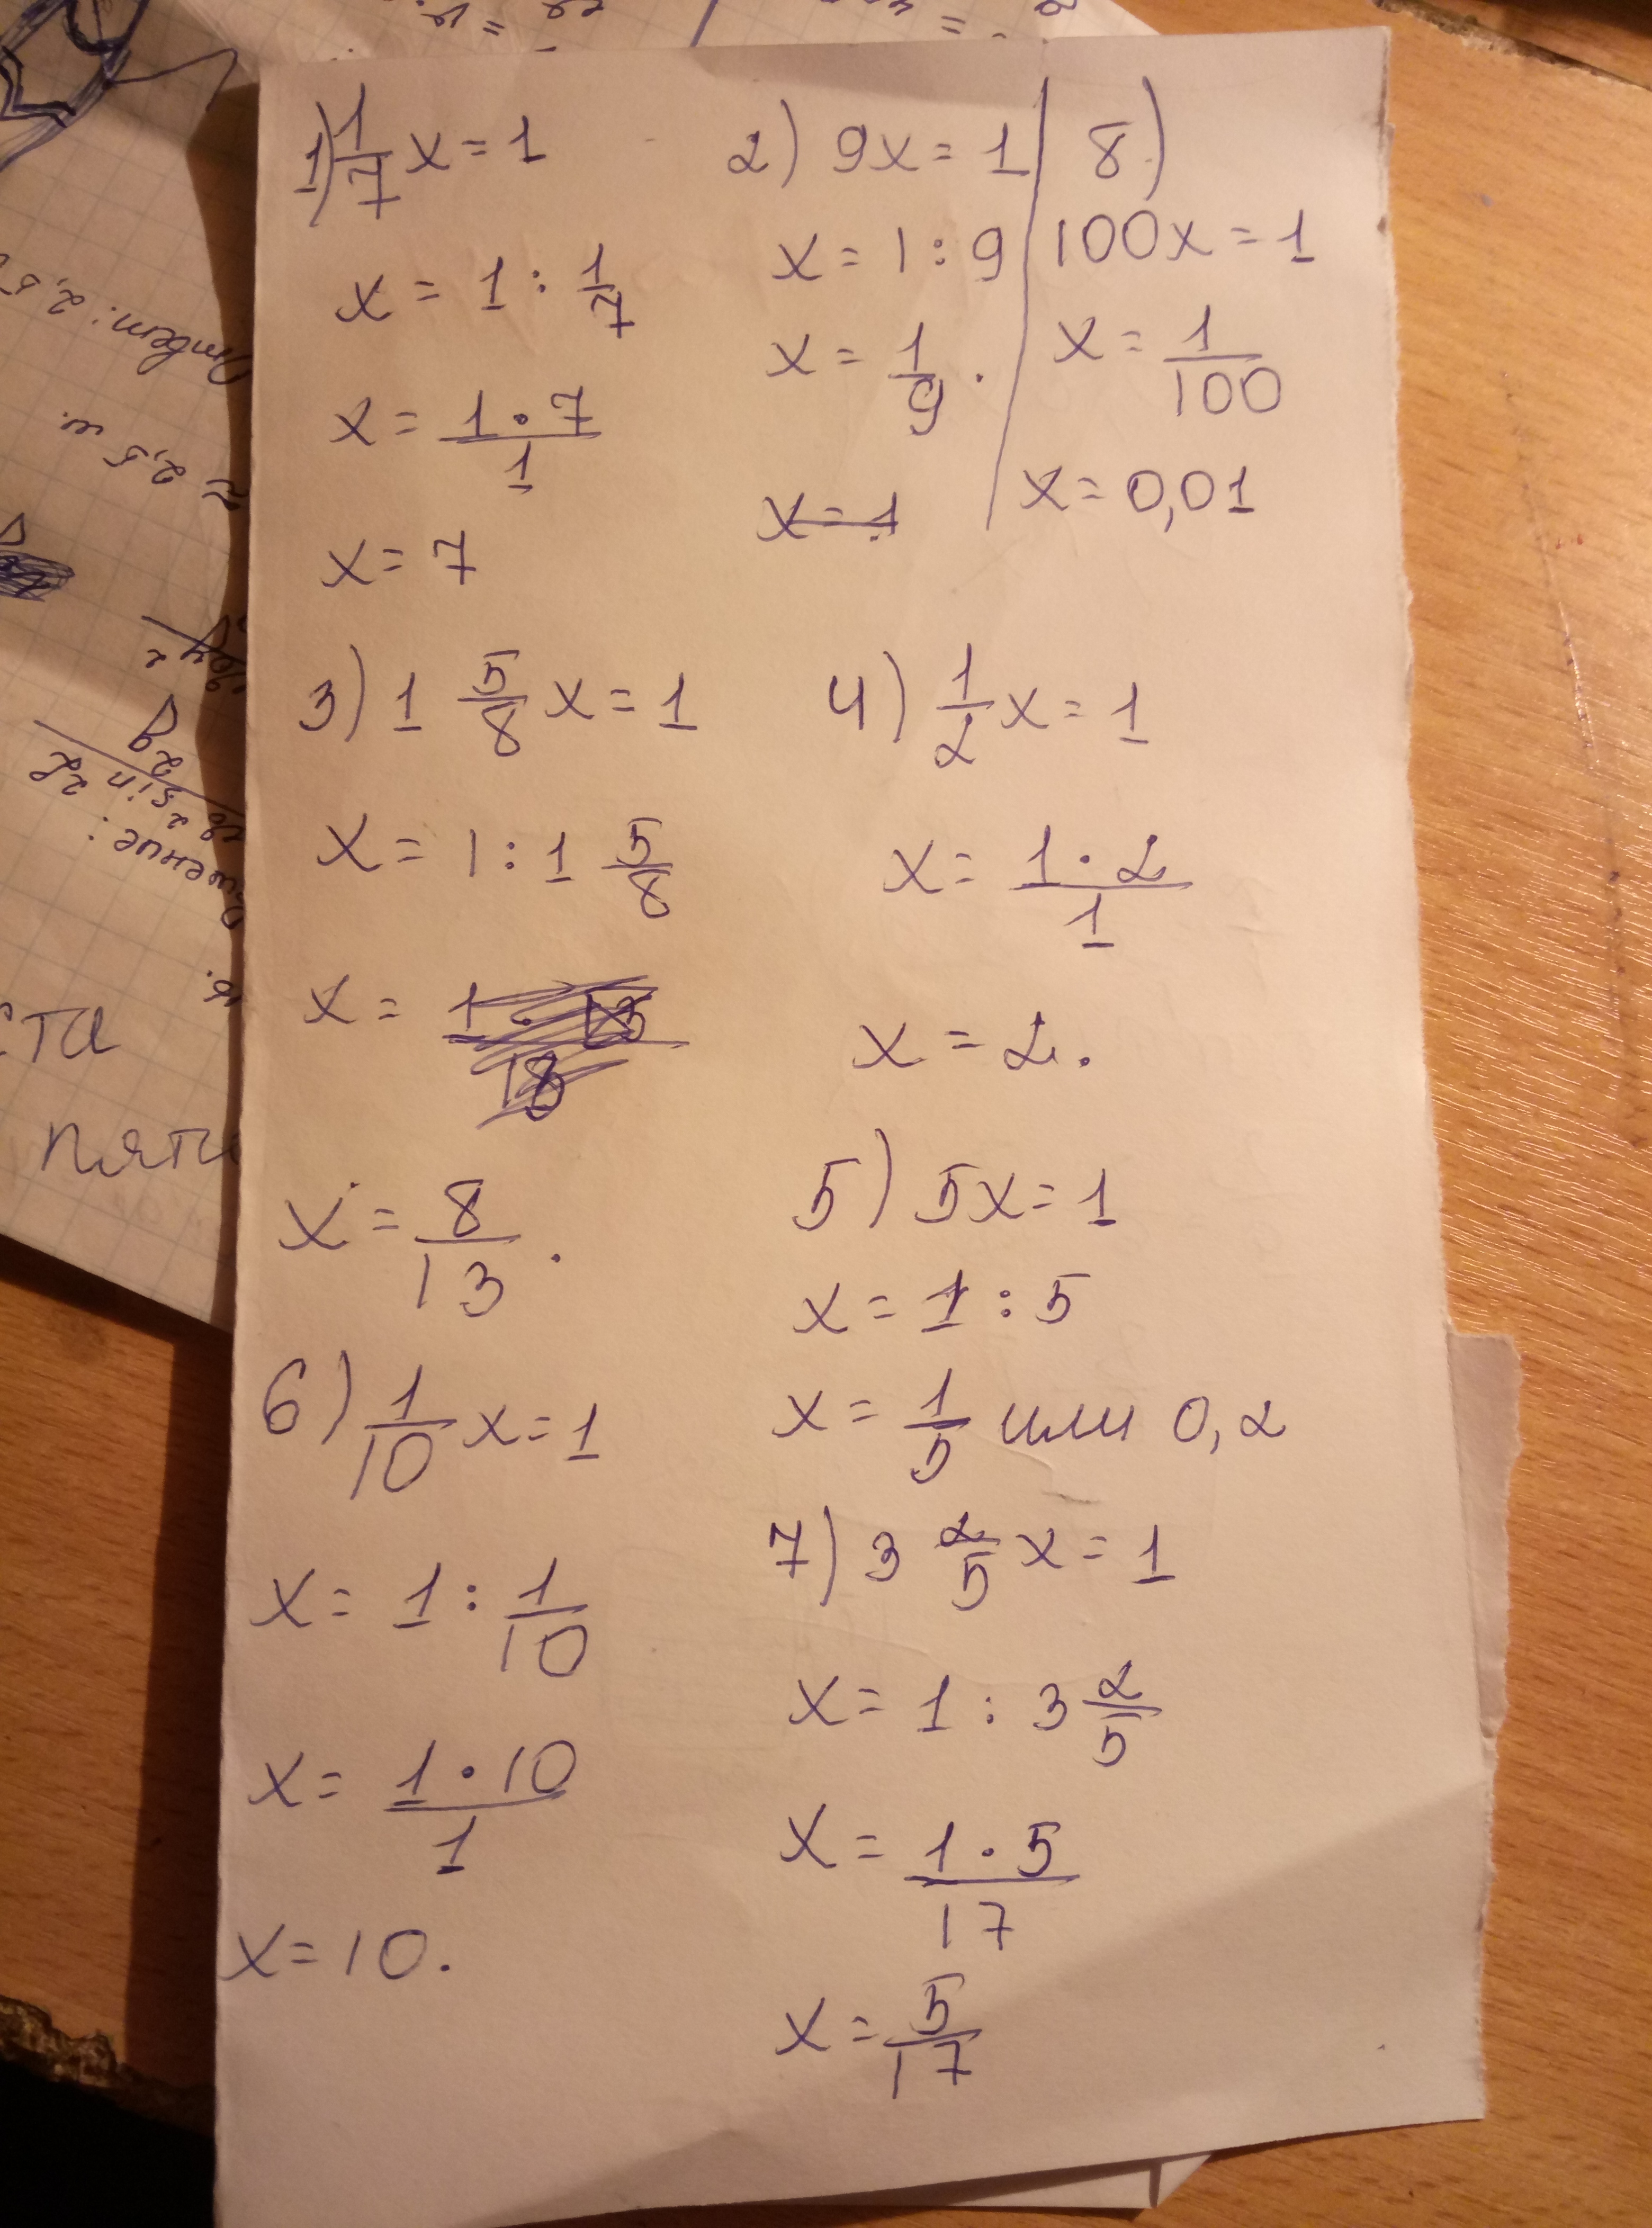 1) 1/7 x = 1
x = 1 : 1/7
x = 1 · 7 / 1
x = 7
2) 9x = 1
x = 1 : 9
x = 1/9 .
x = 1
8)
100x = 1
x = 1/100
x = 0,01
3) 1 5/8 x = 1
x = 1 : 1 5/8
x =
x = 8/13 .
4) 1/2 x = 1
x = 1 · 2 / 1
x = 2.
5) 5x = 1
x = 1 : 5
x = 1/5 или 0,2
6) 1/10 x = 1
x = 1 : 1/10
x = 1 · 10 / 1
x = 10.
7) 3 2/5 x = 1
x = 1 : 3 2/5
x = 1 · 5 / 17
x = 5/17
≈ 2,5 м.